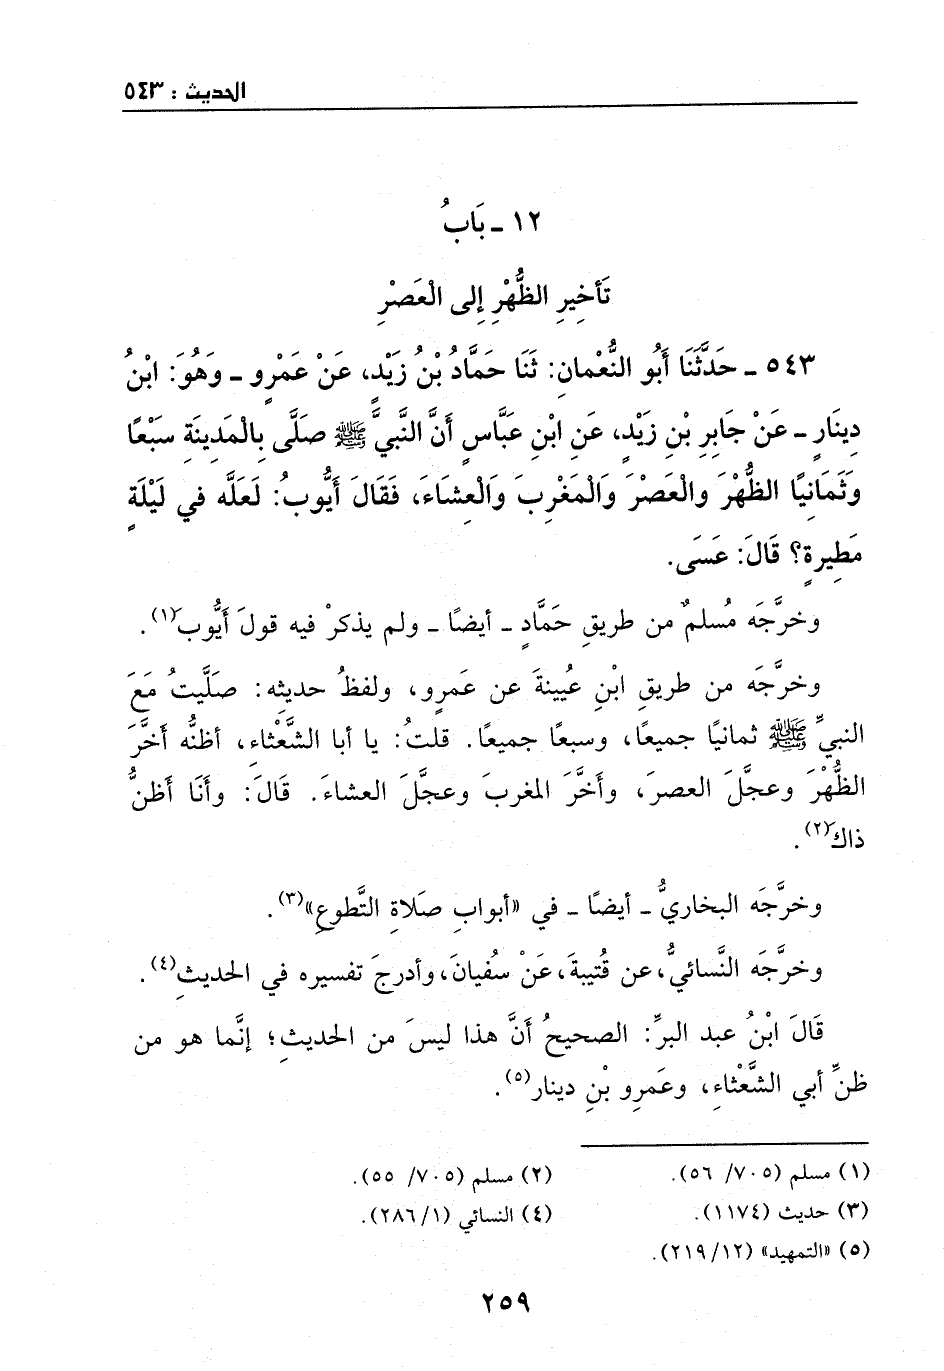 الحديث : ٥٤٣
١٢ - بَابُ
تَأخِيرِ الظُّهْرِ إِلى الْعَصْرِ
٥٤٣ - حَدَّثَنَا أَبُو النُّعْمانِ: ثَنَا حَمَّادُ بْنُ زَيْدٍ، عَنْ عَمْرٍو - وَهُوَ: ابْنُ
دِينَارٍ - عَنْ جَابِرِ بْنِ زَيْدٍ، عَنِ ابْنِ عَبَّاسٍ أَنَّ النَّبيَّ ﷺ صَلَّى بِالْمَدِينَةِ سَبْعًا
وَثَمَانِيًا الظُّهْرَ والْعَصْرَ وَالْمَغْرِبَ وَالْعِشَاءَ، فَقَالَ أَيُّوبُ: لَعَلَّه في لَيْلَةٍ
مَطِيرةٍ؟ قَالَ: عَسَى.
وخرَّجَه مُسلمٌ من طريقِ حَمَّادٍ - أيضًا - ولم يذكرْ فيه قولَ أيُّوب(١).
وخرَّجَه من طريقِ ابْنِ عُيينةَ عن عَمرٍو، ولفظُ حديثِه: صَلَّيتُ مَعَ
النبيِّ ﷺ ثمانيًا جميعًا، وسبعًا جميعًا. قلتُ: يا أبا الشَّعْثاءِ، أظنُّه أخَّرَ
الظُّهْرَ وعجلَّ العصرَ، وأخَّرَ المغربَ وعجلَّ العشاءَ. قَالَ: وأنَا أظنُّ
ذاك(٢).
وخرَّجَه البخاريُّ - أيضًا - في «أبوابِ صَلَاةِ التَّطوعِ»(٣).
وخرَّجَه النَّسائيُّ، عن قُتيبةَ، عَنْ سُفيانَ، وأدرجَ تفسيره في الحديثِ(٤).
قَالَ ابْنُ عبد البرِّ: الصحيحُ أنَّ هذا ليسَ من الحديثِ؛ إنَّما هو من
ظنِّ أبي الشَّعْثاءِ، وعَمرِو بْنِ دينار(٥).
(١) مسلم (٧٠٥/ ٥٦).
(٢) مسلم (٧٠٥/ ٥٥).
(٣) حديث (١١٧٤).
(٤) النسائي (١/ ٢٨٦).
(٥) «التمهيد» (١٢/ ٢١٩).
٢٥٩